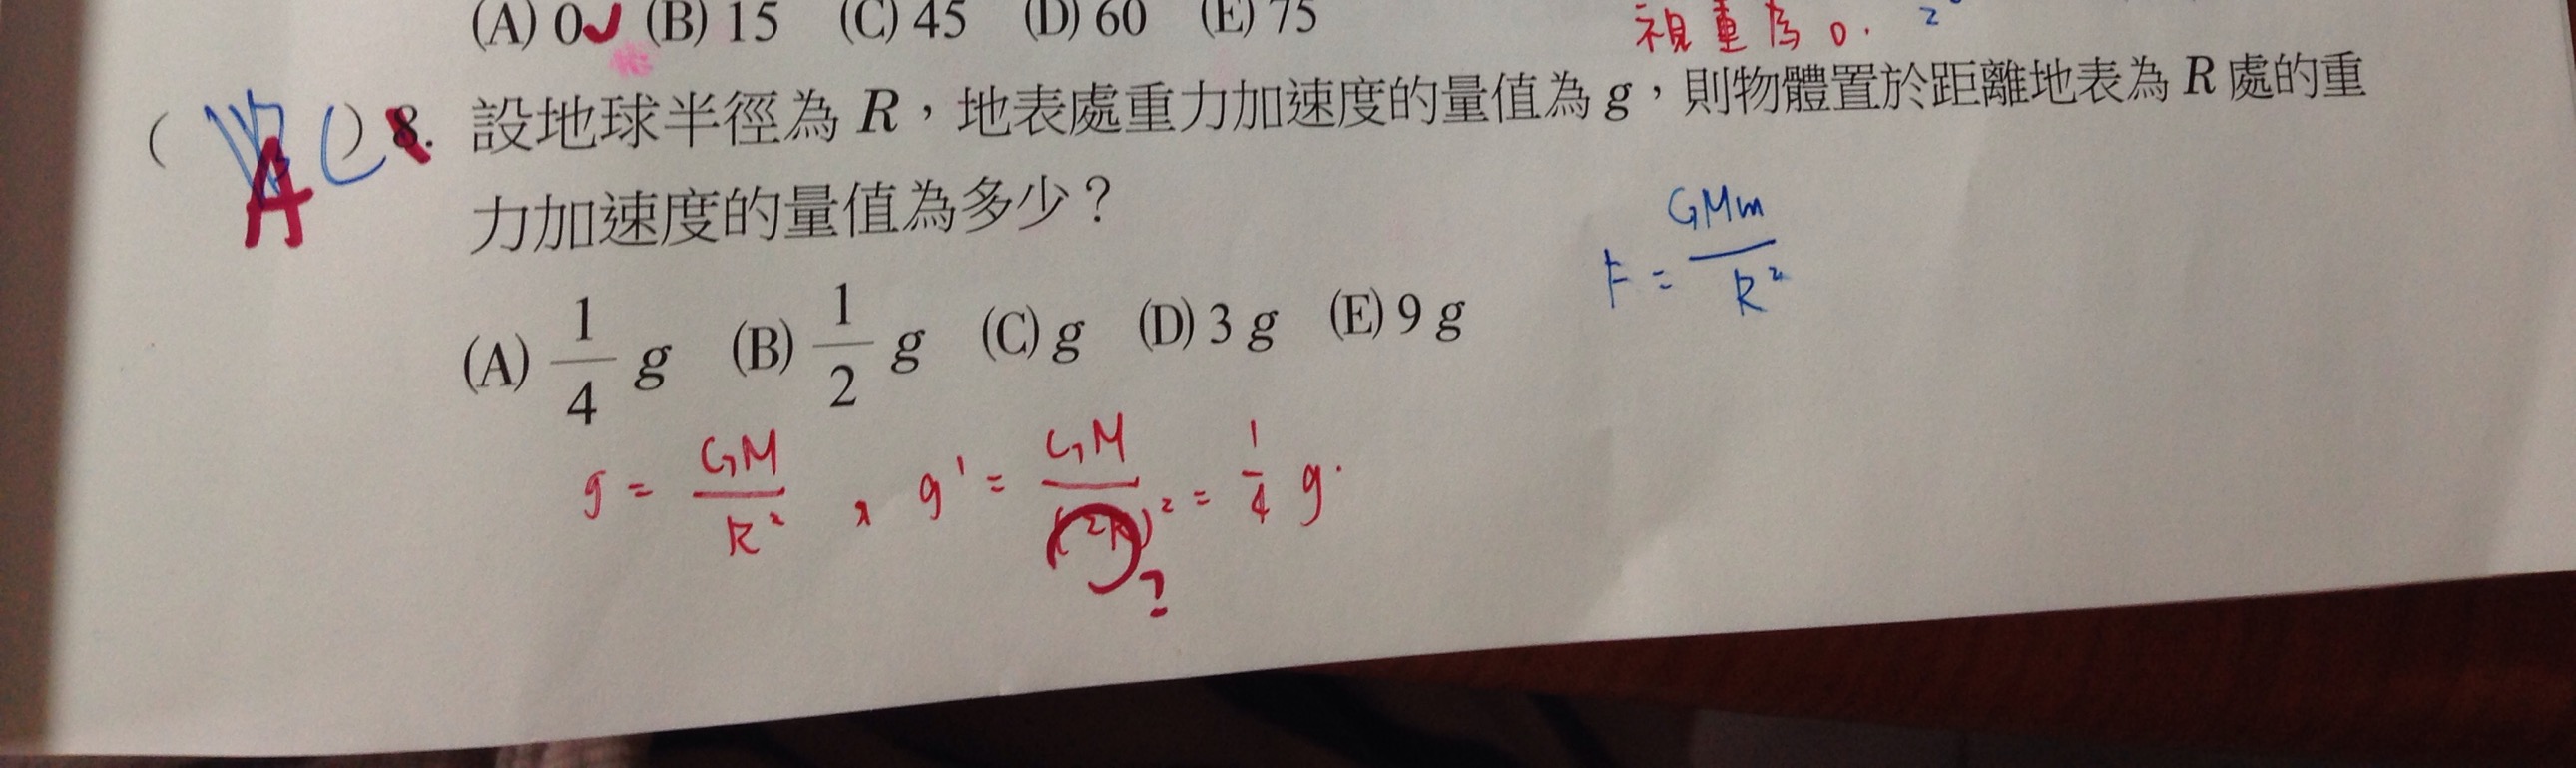 (A) 0✓ (B) 15 (C) 45 (D) 60 (E) 75
視重為 0.
( A C ) 8. 設地球半徑為 R，地表處重力加速度的量值為 g，則物體置於距離地表為 R 處的重
力加速度的量值為多少？
F = GMm / R²
(A) 1/4 g (B) 1/2 g (C) g (D) 3 g (E) 9 g
g = GM / R² , g' = GM / (2R)² = 1/4 g.
?